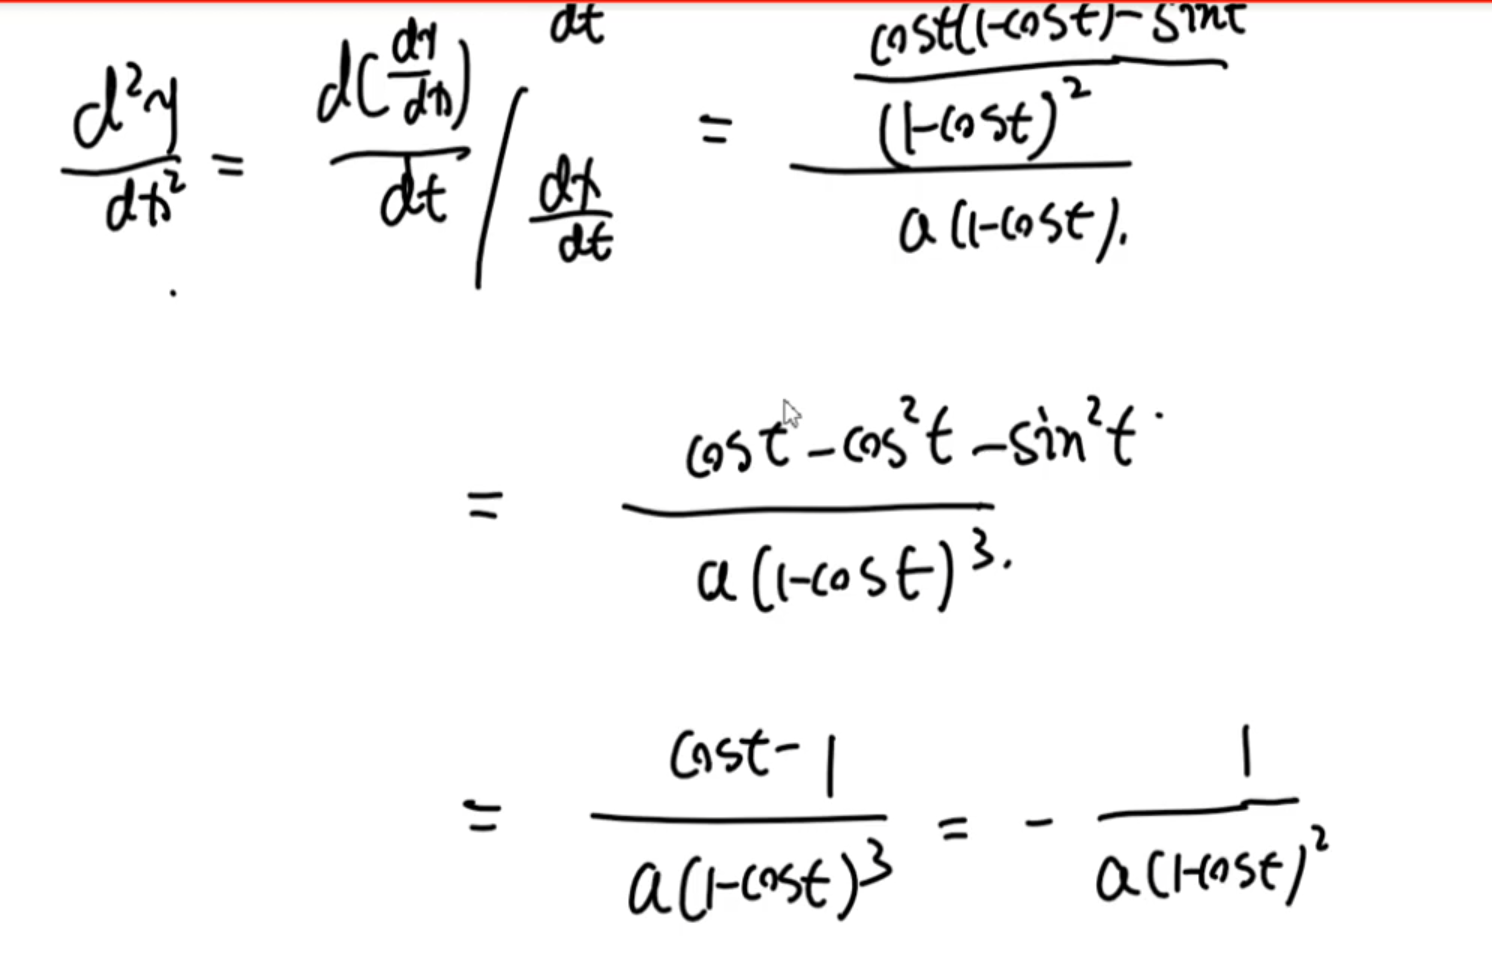 dt
d²y/dx² = d(dy/dx)/dt / dx/dt = (cost(1-cost)-sint)/(1-cost)² / a(1-cost).
= (cost - cos²t - sin²t)/(a(1-cost)³).
= (cost-1)/(a(1-cost)³) = - 1/(a(1-cost)²)